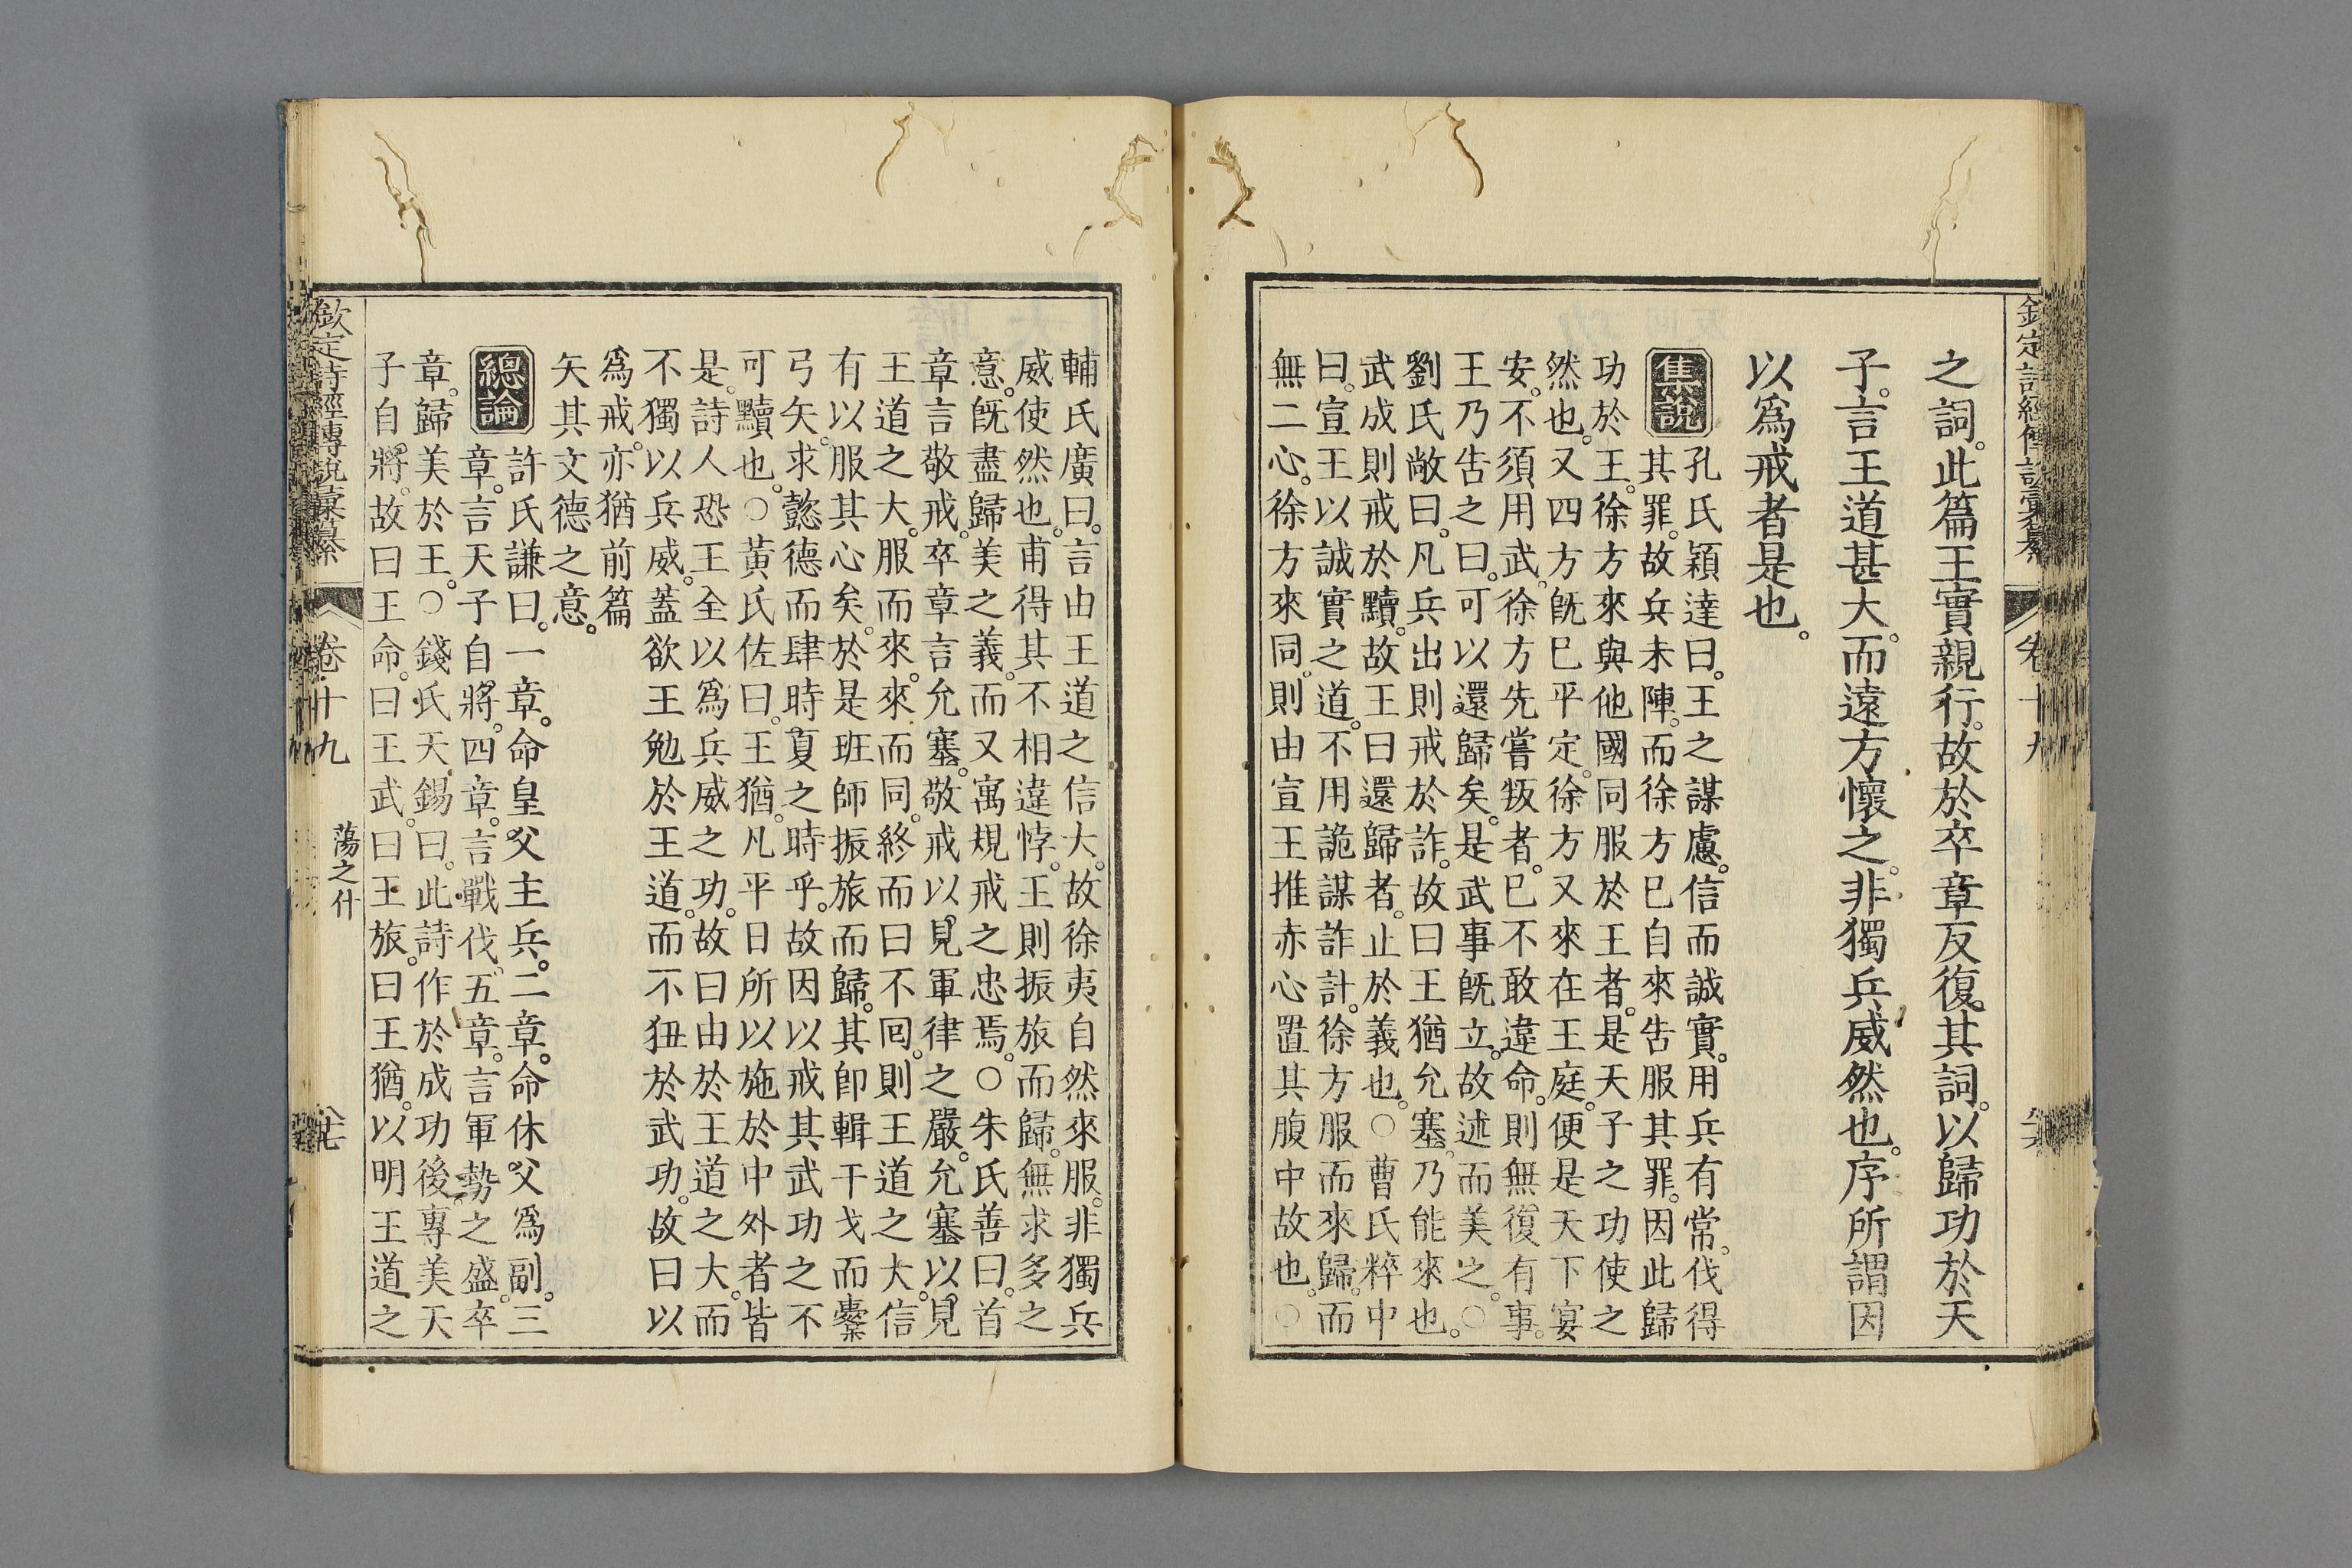 欽定詩經傳說彙纂 卷十九
之詞。此篇王實親行。故於卒章反復其詞。以歸功於天
子。言王道甚大。而遠方懷之。非獨兵威然也。序所謂因
以爲戒者是也。
集說 孔氏穎達曰。王之謀慮。信而誠實。用兵有常。伐得
其罪。故兵未陣。而徐方已自來告服其罪。因此歸
功於王。徐方來與他國同服於王者。是天子之功使之
然也。又四方旣已平定。徐方又來在王庭。便是天下宴
安。不須用武。徐方先嘗叛者。已不敢違命。則無復有事。
王乃告之曰。可以還歸矣。是武事旣立。故述而美之。○
劉氏敞曰。凡兵出則戒於詐。故曰王猶允塞。乃能來也。
武成則戒於黷。故王曰還歸者。止於義也。○曹氏粹中
曰。宣王以誠實之道。不用詭謀詐計。徐方服而來歸。而
無二心。徐方來同。則由宣王推赤心置其腹中故也。○
輔氏廣曰。言由王道之信大。故徐夷自然來服。非獨兵
威使然也。甫得其不相違悖。王則振旅而歸。無求多之
意。旣盡歸美之義。而又寓規戒之忠焉。○朱氏善曰。首
章言敬戒。卒章言允塞。敬戒以見軍律之嚴。允塞以見
王道之大。服而來。來而同。終而曰不回。則王道之大。信
有以服其心矣。於是班師振旅而歸。其卽輯干戈而櫜
弓矢。求懿德而肆時夏之時乎。故因以戒其武功之不
可黷也。○黃氏佐曰。王猶。凡平日所以施於中外者皆
是。詩人恐王全以爲兵威之功。故曰由於王道之大。而
不獨以兵威。蓋欲王勉於王道。而不狃於武功。故曰以
爲戒。亦猶前篇
矢其文德之意。
總論 許氏謙曰。一章。命皇父主兵。二章。命休父爲副。三
章。言天子自將。四章。言戰伐。五章。言軍勢之盛。卒
章。歸美於王。○錢氏天錫曰。此詩作於成功後。專美天
子自將。故曰王命。曰王武。曰王旅。曰王猶。以明王道之
欽定詩經傳說彙纂 卷十九 蕩之什